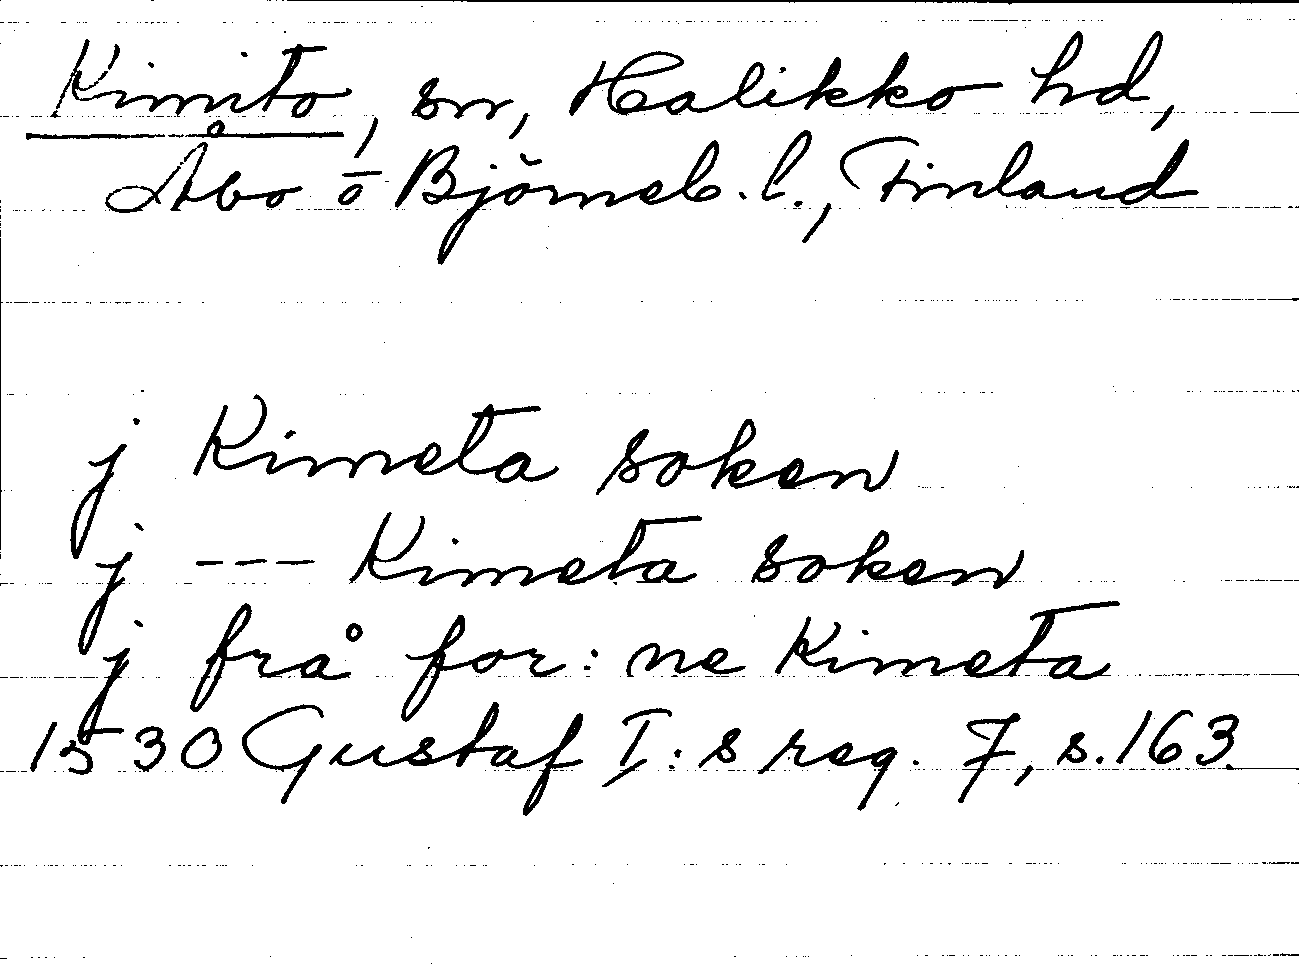 Kimito, sn, Halikko hd,
Åbo o Björneb. l., Finland
j Kimeta soken
j --- Kimeta soken
j frå for: ne Kimeta
1530 Gustaf I: s reg. 7, s. 163.